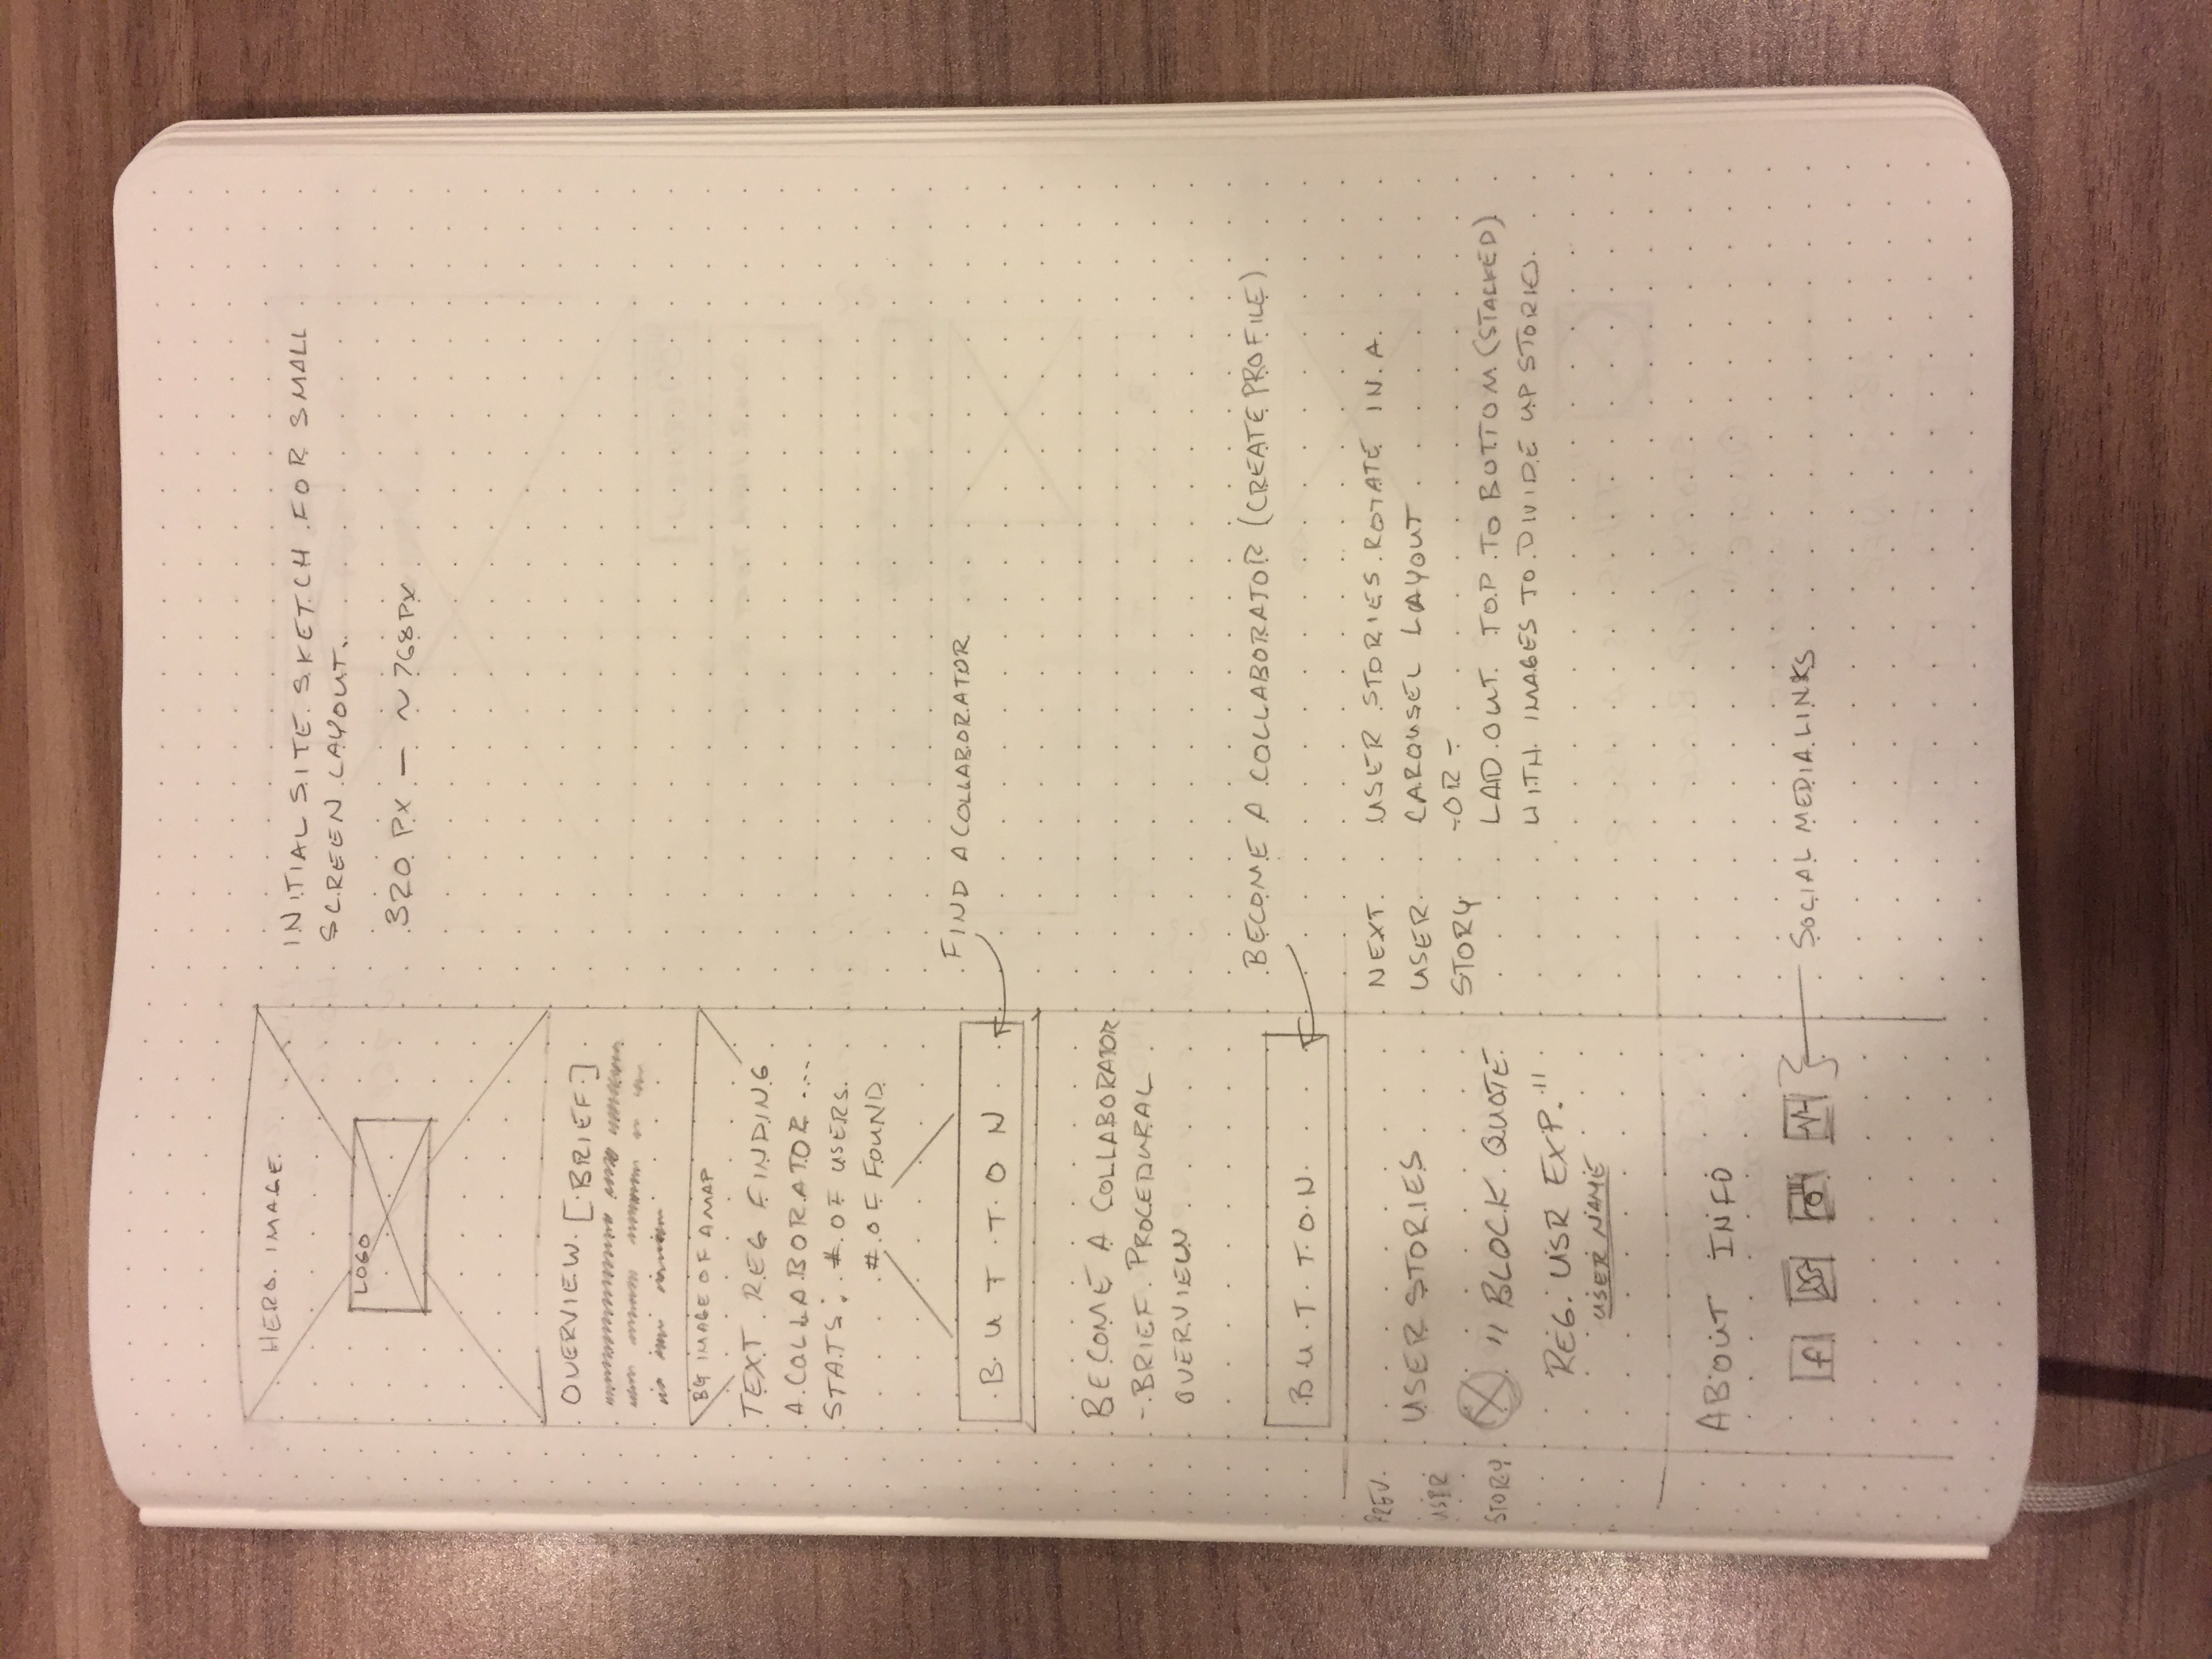 HERO IMAGE
LOGO
INITIAL SITE SKETCH FOR SMALL
SCREEN LAYOUT.
320 PX — ~768PX
OVERVIEW [BRIEF]
BG IMAGE OF A MAP
TEXT REG FINDING
A COLLABORATOR ....
STATS: # OF USERS
# OF FOUND
BUTTON
FIND A COLLABORATOR
BECOME A COLLABORATOR
- BRIEF PROCEDURAL
OVERVIEW
BUTTON
BECOME A COLLABORATOR (CREATE PROFILE)
PREV.
USER
STORY
USER STORIES
" BLOCK QUOTE
REG. USR EXP."
USER NAME
NEXT
USER
STORY
USER STORIES ROTATE IN A
CAROUSEL LAYOUT
-OR-
LAID OUT TOP TO BOTTOM (STACKED)
WITH IMAGES TO DIVIDE UP STORIES.
ABOUT INFO
f
SOCIAL MEDIA LINKS